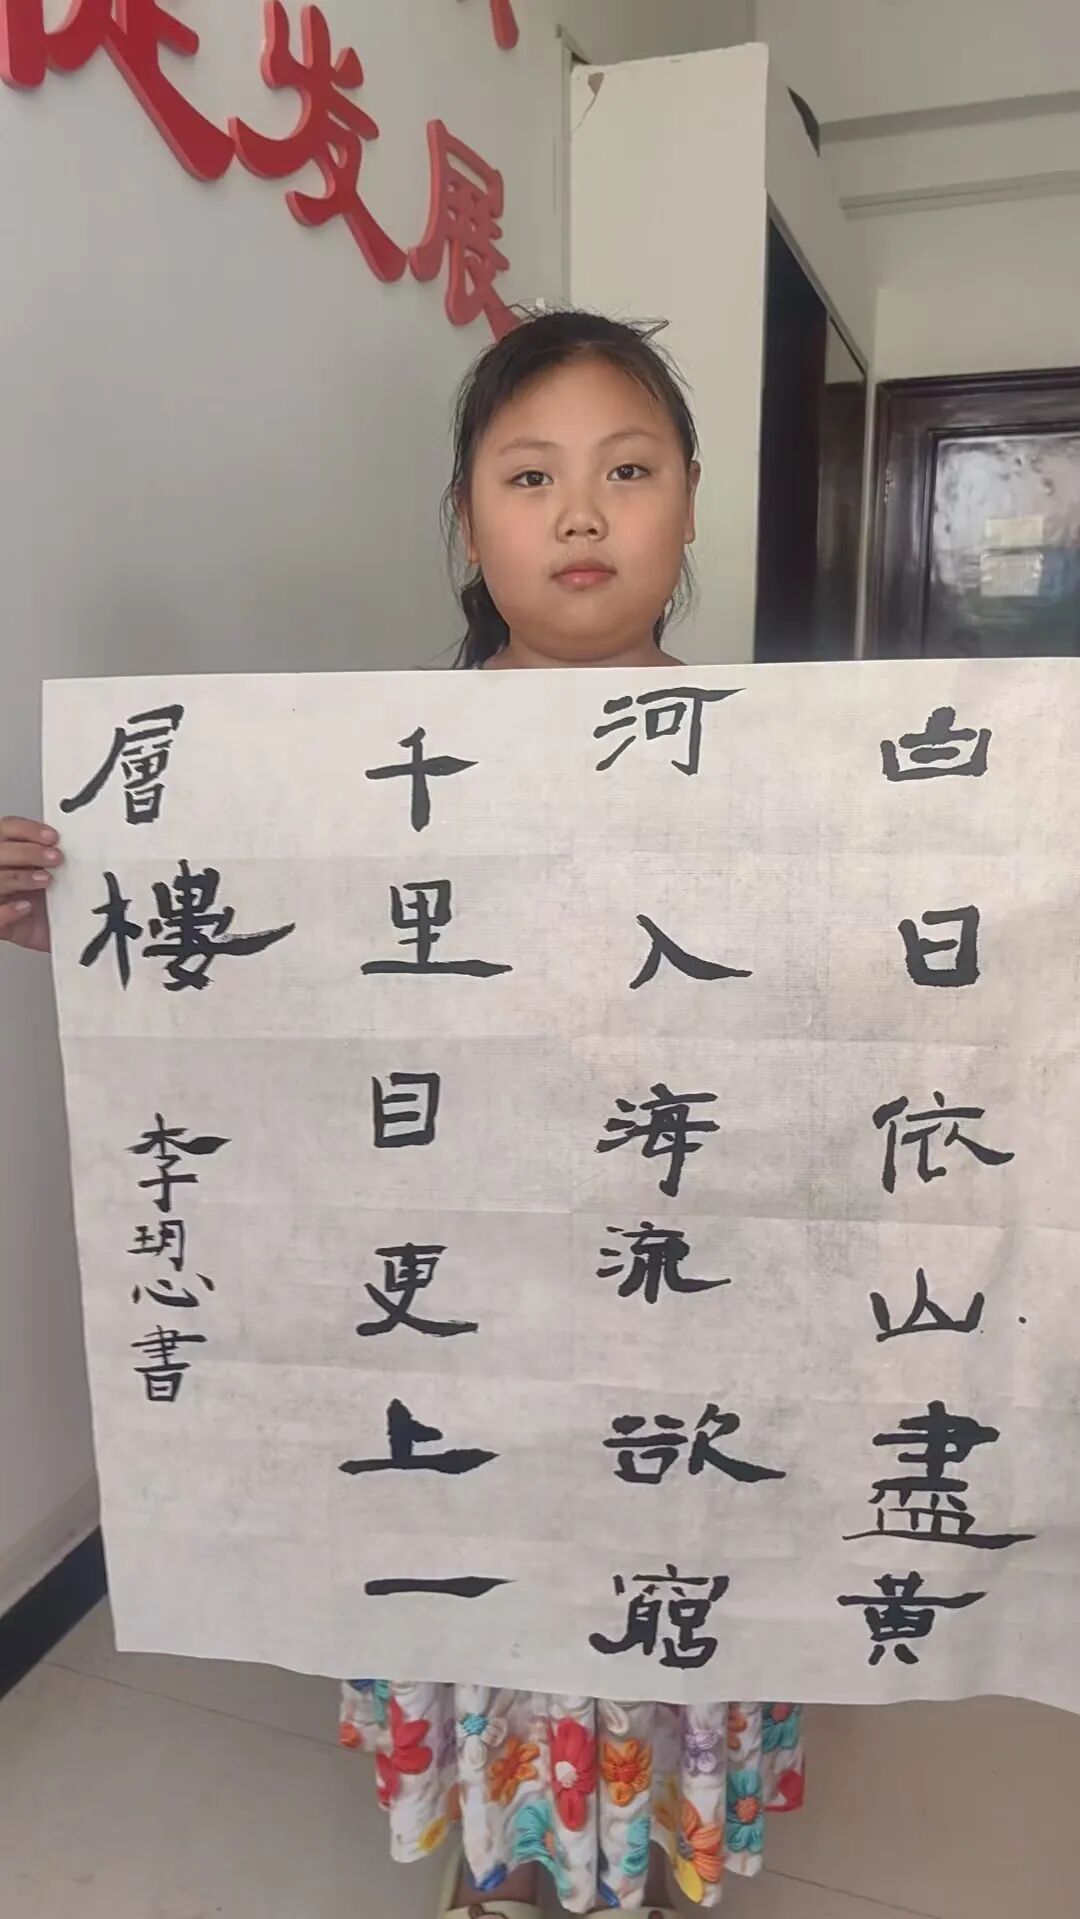 发展
白日依山盡黄
河入海流欲窮
千里目更上一
層樓
李玥心書